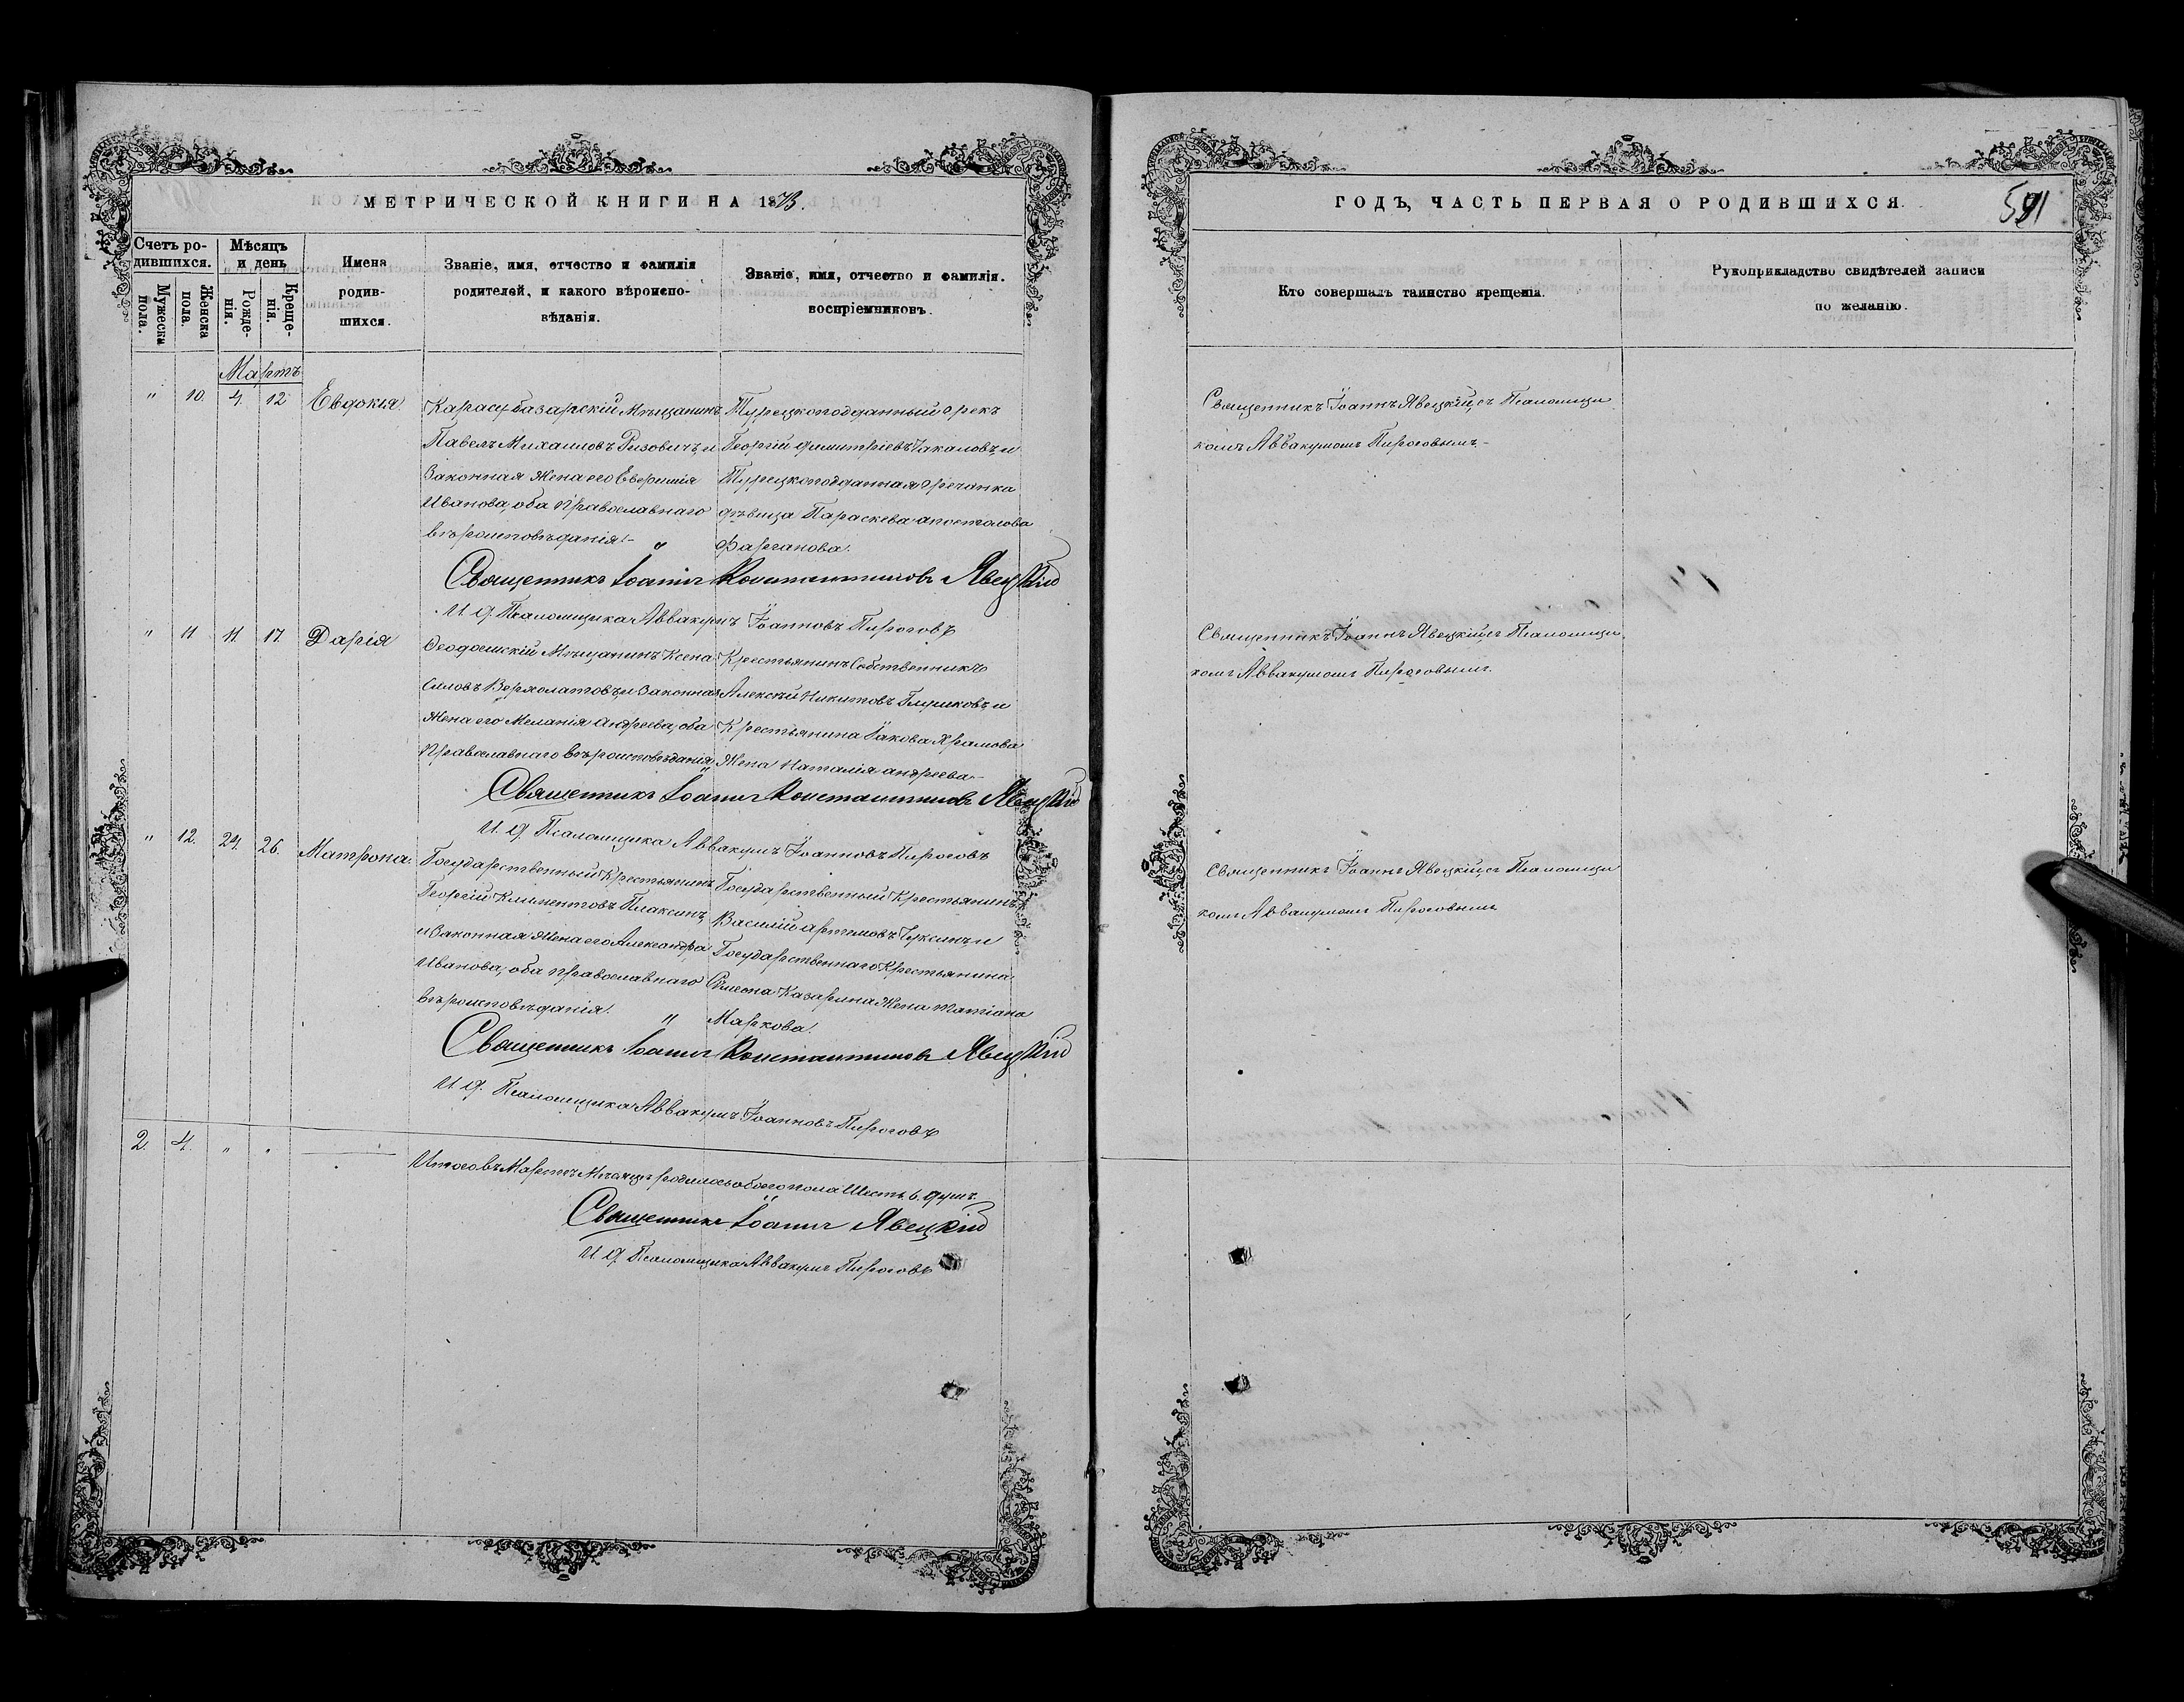 МЕТРИЧЕСКОЙ КНИГИ НА 1873.
Счетъ ро-
дившихся.
Мужеска
пола.
Женска
пола.
Мѣсяцъ
и день
Рожде-
нія.
Креще-
нія.
Имена
родив-
шихся.
Званіе, имя, отчество и фамилія
родителей, и какого вѣроиспо-
вѣданія.
Званіе, имя, отчество и фамилія.
воспріемниковъ.
Мартъ
" 10. 4. 12 Евдокія.
Карасубазарскій Мѣщанинъ
Павелъ Михаиловъ Ризовичъ, и
Законная Жена его Еверимія
Иванова, оба Православнаго
вѣроисповѣданія!-
Турецкоподданный Грекъ
Георгій Димитріевъ Чакаловъ, и
Турецкоподданная Гречанка
дѣвица Параскева апостолова
Фарганова.
Священникъ Іоаннъ Константиновъ Явецкій
И. Д. Псаломщика Аввакумъ Іоанновъ Пироговъ
" 11 11 17. Дарія
Ѳеодосійскій Мѣщанинъ Ксено
Силовъ Верхолатовъ, и Законная
Жена его Меланія Андреева, оба
Православнаго Вѣроисповѣданія
Крестьянинъ Собственникъ
Алексѣй Никитовъ Глушковъ, и
Крестьянина Іакова Храмова
Жена Наталія андреева-
Священникъ Іоаннъ Константиновъ Явецкій
И. Д. Псаломщика Аввакумъ Іоанновъ Пироговъ
" 12. 24. 26. Матрона.
Государственный Крестьянинъ
Георгій Климентовъ Плаксинъ,
и Законная Жена его Александра
Иванова, оба Православнаго
вѣроисповѣданія!
Государственный Крестьянинъ
Василій артемовъ Чуксинъ, и
Государственнаго Крестьянина
Симеона Казарина Жена Татіана
Маркова!
Священникъ Іоаннъ Константиновъ Явецкій
И. Д. Псаломщика Аввакумъ Іоанновъ Пироговъ
2. 4. " "
Итого въ Мартѣ Мѣсяцѣ родилось обоего пола Шесть 6. душъ.
Священникъ Іоаннъ Явецкій
И. Д. Псаломщика Аввакумъ Пироговъ
ГОДЪ, ЧАСТЬ ПЕРВАЯ О РОДИВШИХСЯ.
Кто совершалъ таинство крещенія.
Рукоприкладство свидѣтелей записи
по желанію.
Священникъ Іоаннъ Явецкій, съ Псаломщи
комъ Аввакумомъ Пироговымъ-
Священникъ Іоаннъ Явецкій, съ Псаломщи
комъ Аввакумомъ Пироговымъ.
Священникъ Іоаннъ Явецкій, съ Псаломщи
комъ Аввакумомъ Пироговымъ